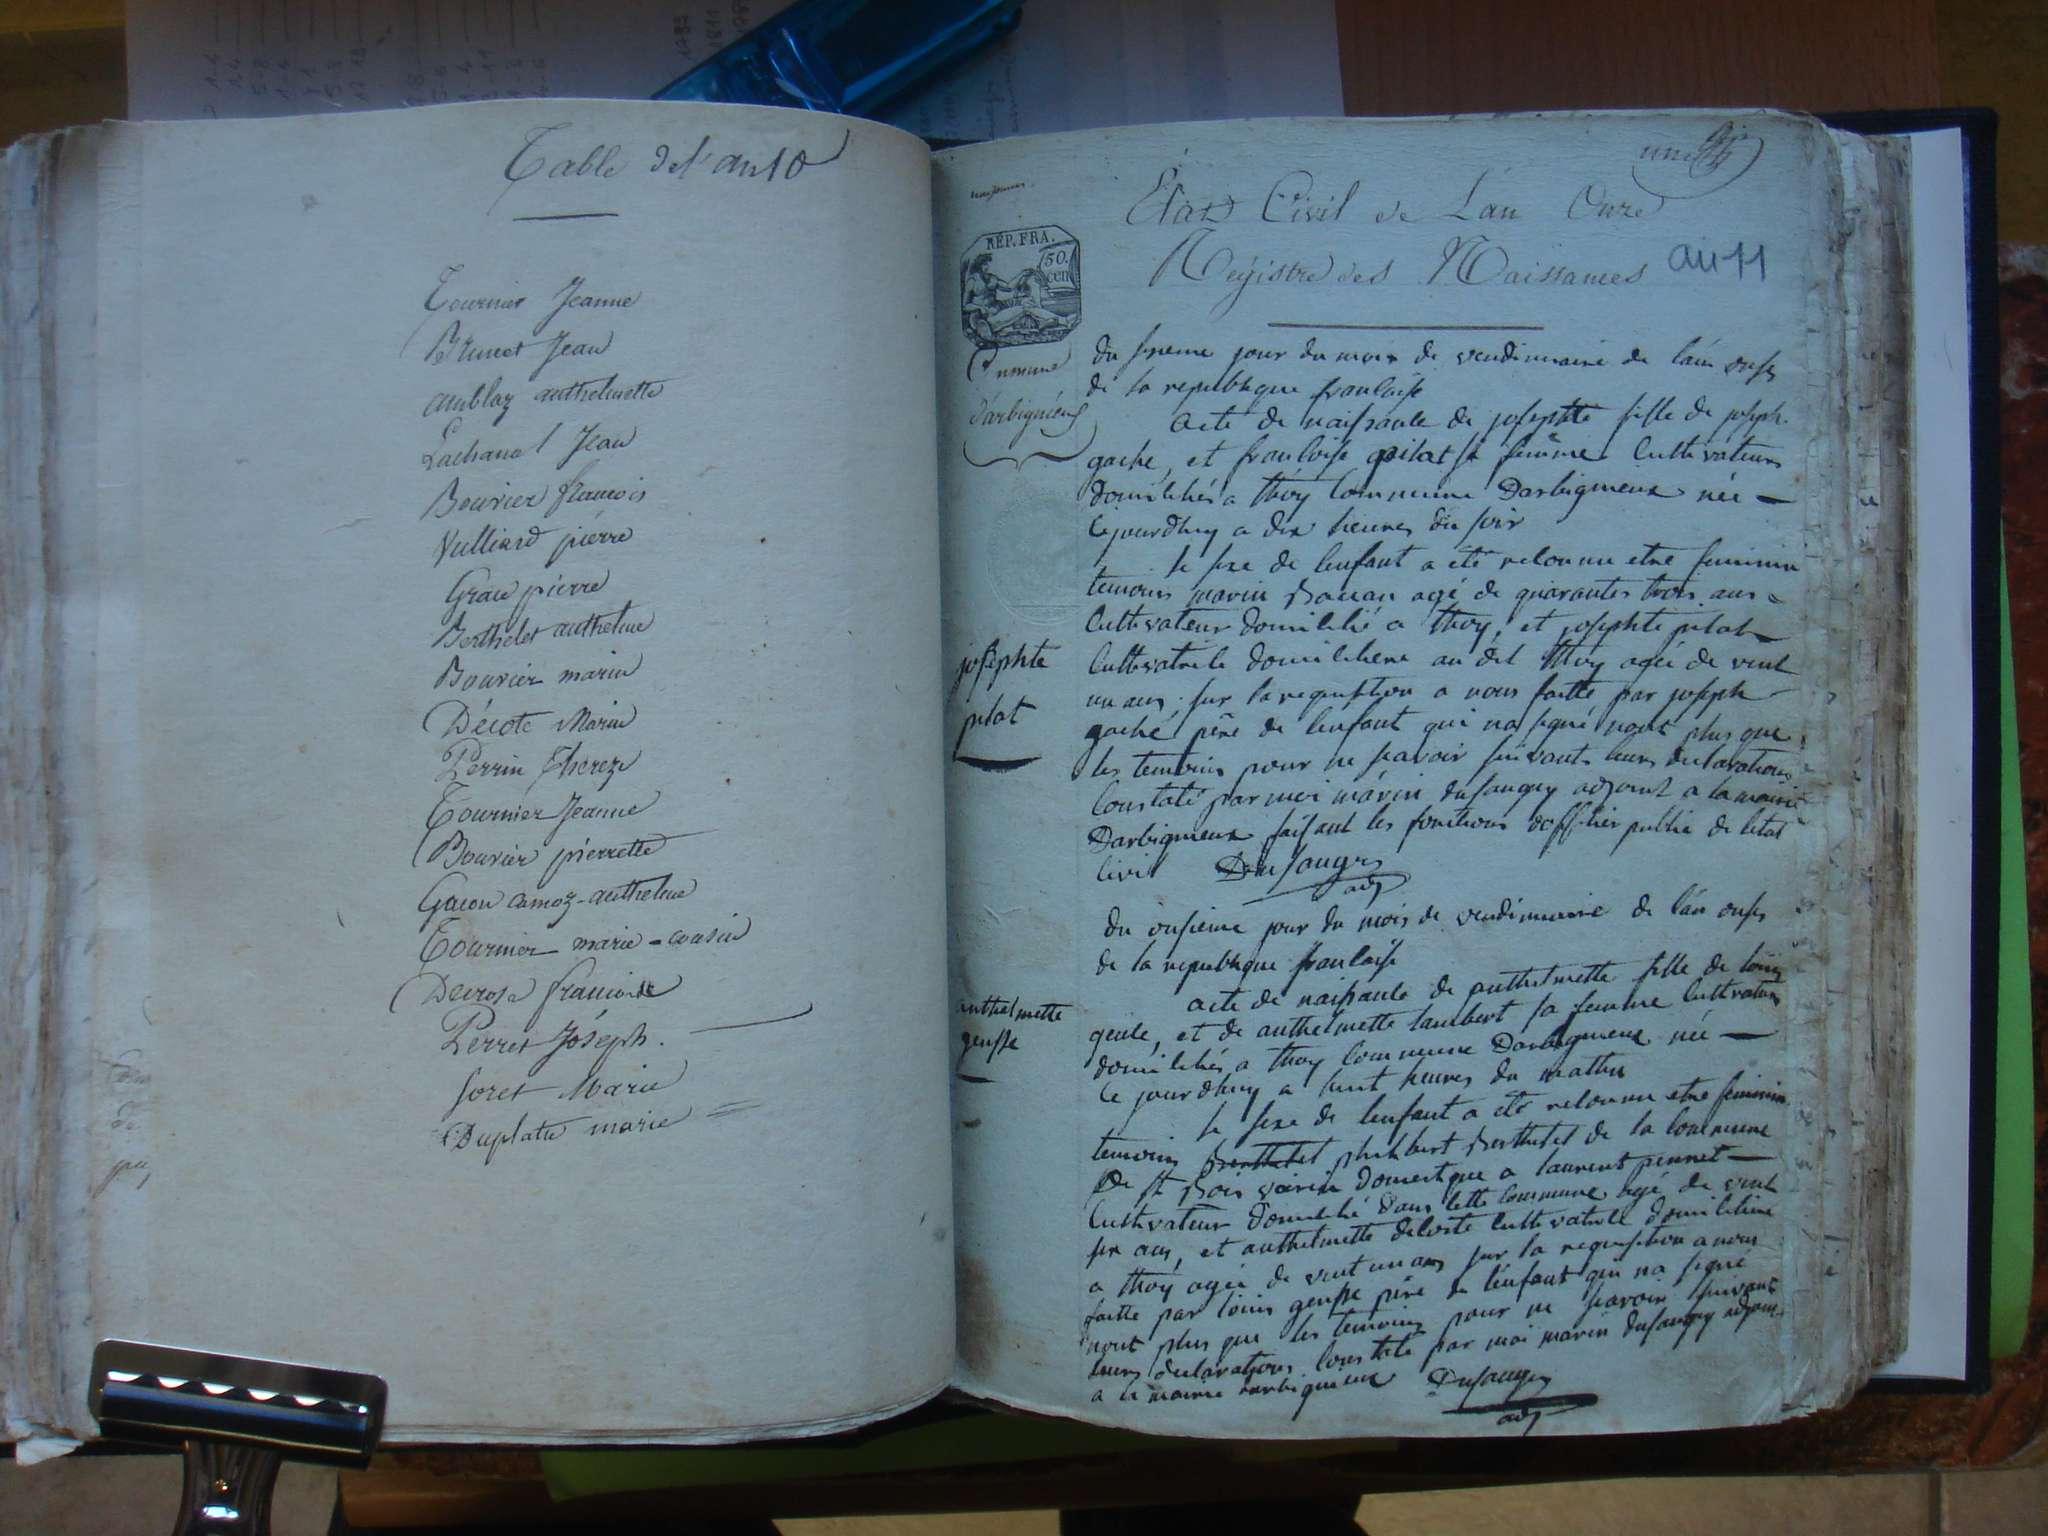 Table de l'an 10
Tournier Jeanne
Brunet Jean
Amblaz anthelmette
Lachanal Jean
Bouvier françois
Vulliard pierre
Grau pierre
Berthelet anthelme
Bouvier marin
Décote Marin
Perrin Thereze
Tournier Jeanne
Bouvier pierrette
Gacon camoz-anthelme
Tournier marie-cousin
Decrose françoise
Perret Joseph.
foret Marie
Duplatre marie
naissances
Etat Civil de L'an Onze
Régistre des Naissances an 11
REP. FRA.
50. cen
Commune
d'arbignieux
du jour du mois de vendimiaire de l'an onse
de la republique francaise
acte de naissance de josephte fille de joseph
gaché, et francoise pilat sa femme cultivateurs
domiciliés a thoy commune Darbignieux née
cejourdhuy a dix heures du soir
le sexe de lenfant a été reconnu etre feminin
temoins marin agé de quarante trois ans
cultivateur domicilié a thoy, et josephte pilat
cultivatrice domiciliere au dit thoy agée de vint
un ans sur la requisition a nous faitte par joseph
gaché père de lenfant qui na signé nont plus que
les temoins pour ne scavoir suivants leurs declarations
Constaté par moi marin dusaugey adjoint a la mairie
Darbignieux faisant les fonctions dofficier public de letat
civil Dusaugey
adj
josephte
pilat
du onsieme jour du mois de vendimiaire de l'an onse
de la republique francaise
acte de naissance de anthelmette fille de louis
gense, et de anthelmette lambert sa femme cultivateurs
domiciliés a thoy commune Darbignieux née
ce jourdhuy a huit heures du mattin
le sexe de lenfant a été reconnu etre feminin
temoins berthelet philibert berthelet de la commune
De st bois domestique a laurent perret
cultivateur domicilié dans cette commune agé de vint
six ans, et anthelmette decoste cultivatrice domiciliere
a thoy agée de vint un ans sur la requisition a nous
faitte par louis gense père de lenfant qui na signé
nont plus que les temoins pour ne scavoir suivant
leurs declarations Constaté par moi marin dusaugey adjoint
a la mairie darbignieux Dusaugey
adj
anthelmette
gense